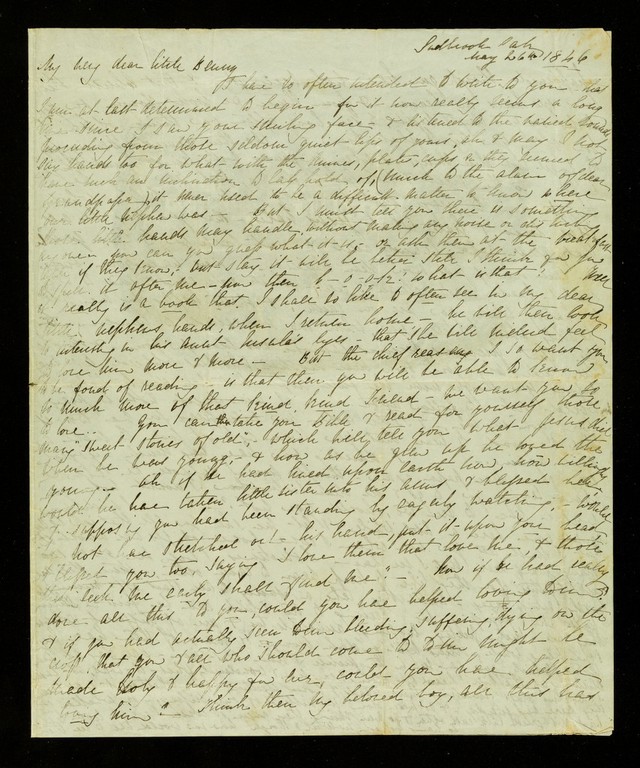 Sudbrook Park
May 26th 1846
My very dear little Henry
I have so often intended to write to you that
I am at last determined to begin - for it now really seems a long
time since I saw your smiling face - & listened to the varied sounds
proceeding from those seldom quiet lips of yours, ah & may I not
say hands too for what with the mines, plates, cups as they seemed to
have such an inclination to lay hold of, much to the alarm of dear
Grandpapa, it used to be a difficult matter to know where
your little was - But I must tell you there is something
those little hands may handle without making any noise or
- now can you guess what it is, or ask them at the breakfast
if they know, but stay it will be better still I think for you
to spell it after me - now then B-o-o-k! what is that! Well
it really is a book that I shall so like to often see in my dear
little nephews hands, when I return home - he will then look
so interesting in his Aunt eyes that she will indeed feel
love him more & more - But the chief reason I so want you
to be fond of reading - is that then you will be able to know
so much more of that kind, kind Friend - we want you to
love.. you can then take your Bible & read for yourself those
many "sweet stories of old", which will tell you what Jesus did
when he was young, - & how as he grew up he loved the
young - ah if he had lived upon earth now, how willingly
would he have taken little sister into his arms & blessed her
& supposing you had been standing by eagerly watching, - would
he not have stretched out his hand, put it upon your head
& blessed you too, saying "I love them that love me, & those
that seek me early shall find me" - Now if he had really
done all this to you, could you have helped loving Him?
& if you had actually seen Him bleeding, suffering, dying on the
cross that you & all who should come to Him might be
made holy & happy for ever, could you have helped
loving him? Think then my beloved boy, all this has